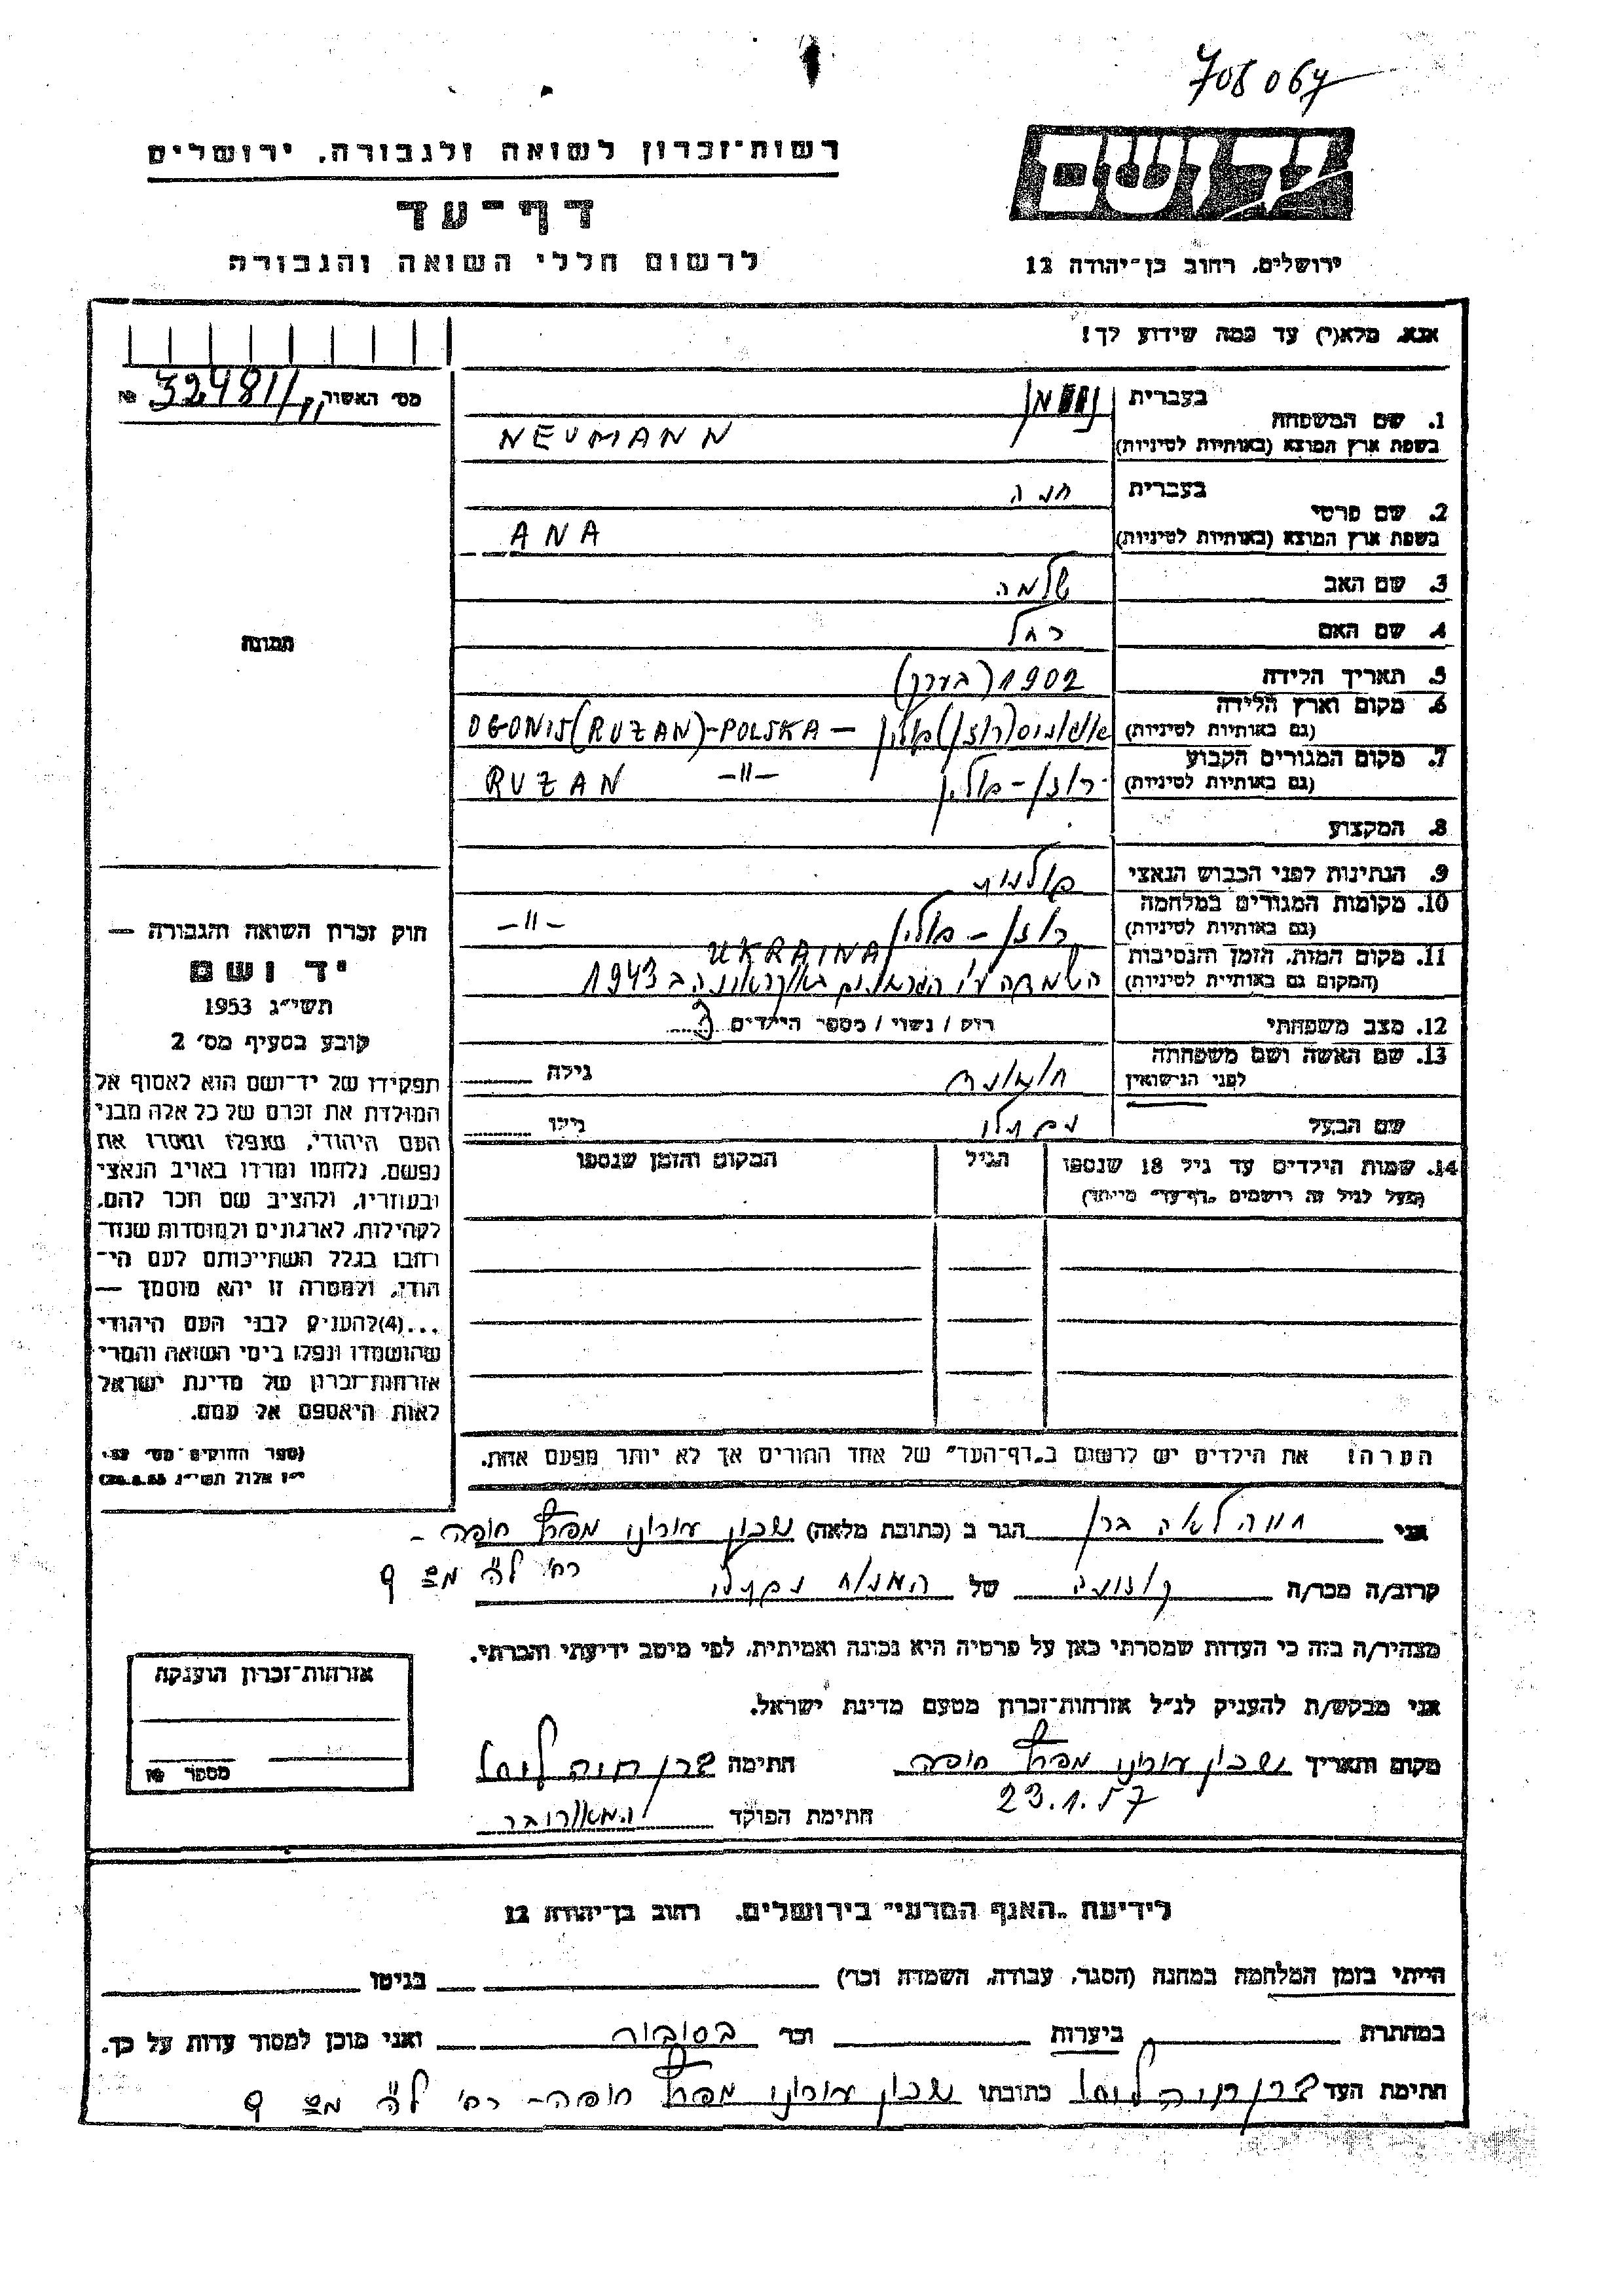 708067
יד ושם
ירושלים, רחוב בן־יהודה 12
רשות־זכרון לשואה ולגבורה, ירושלים
דף־עד
לרשום חללי השואה והגבורה
אנא, מלא(י) עד כמה שידוע לך!
מס׳ האשור 32481 №
1. שם המשפחה
בעברית
בשפת ארץ המוצא (באותיות לטיניות) NEUMANN
2. שם פרטי
בעברית חנה
בשפת ארץ המוצא (באותיות לטיניות) ANA
3. שם האב שלמה
4. שם האם רחל
5. תאריך הלידה 1902 (בערך)
6. מקום וארץ הלידה
(גם באותיות לטיניות) (רוז׳ן) פולין — OGONIS (RUZAN)-POLSKA
7. מקום המגורים הקבוע
(גם באותיות לטיניות) רוז׳ן - פולין -11- RUZAN
8. המקצוע
9. הנתינות לפני הכבוש הנאצי פולנית
10. מקומות המגורים במלחמה
(גם באותיות לטיניות) רוז׳ן - פולין -11-
11. מקום המות, הזמן והנסיבות UKRAINA
(המקום גם באותיות לטיניות) הושמדה ע״י הגרמנים באוקראינה ב 1943
12. מצב משפחתי רוק / נשוי / מספר הילדים 3
13. שם האשה ושם משפחתה
לפני הנישואין גילה
שם הבעל נפתלי גילו
14. שמות הילדים עד גיל 18 שנספו
(מעל לגיל זה רושמים „דף־עד״ מיוחד)
הגיל
המקום והזמן שנספו
הערה: את הילדים יש לרשום ב„דף־העד״ של אחד ההורים אך לא יותר מפעם אחת.
תמונה
חוק זכרון השואה והגבורה —
יד ושם
תשי״ג 1953
קובע בסעיף מס׳ 2
תפקידו של יד־ושם הוא לאסוף אל
המולדת את זכרם של כל אלה מבני
העם היהודי, שנפלו ומסרו את
נפשם, נלחמו ומרדו באויב הנאצי
ובעוזריו, ולהציב שם וזכר להם,
לקהילות, לארגונים ולמוסדות שנח־
רבו בגלל השתייכותם לעם הי־
הודי, ולמטרה זו יהא מוסמך —
...(4) להעניק לבני העם היהודי
שהושמדו ונפלו בימי השואה והמרי
אזרחות־זכרון של מדינת ישראל
לאות היאספם אל עמם.
(ספר החוקים מס׳ 132,
י״ז אלול תשי״ג 28.8.53)
אני חווה לאה ברן הגר ב (כתובת מלאה) שכון עובדי מפרץ חיפה -
קרוב/ה מכר/ה של נפתלי
מצהיר/ה בזה כי העדות שמסרתי כאן על פרטיה היא נכונה ואמיתית, לפי מיטב ידיעתי והכרתי.
אני מבקש/ת להעניק לנ״ל אזרחות־זכרון מטעם מדינת ישראל.
מקום ותאריך שכון עובדי מפרץ חיפה חתימה ברן חיה
23.1.57
חתימת הפוקד
אזרחות־זכרון הוענקה
מספר №
לידיעת „האגף המדעי״ בירושלים, רחוב בן־יהודה 12
הייתי בזמן המלחמה במחנה (הסגר, עבודה, השמדה וכו׳) בגיטו
במחתרת ביערות וכו׳ בסיביר ואני מוכן למסור עדות על כך.
חתימת העד ברן חיה כתובתו שכון עובדי מפרץ חיפה - רח׳